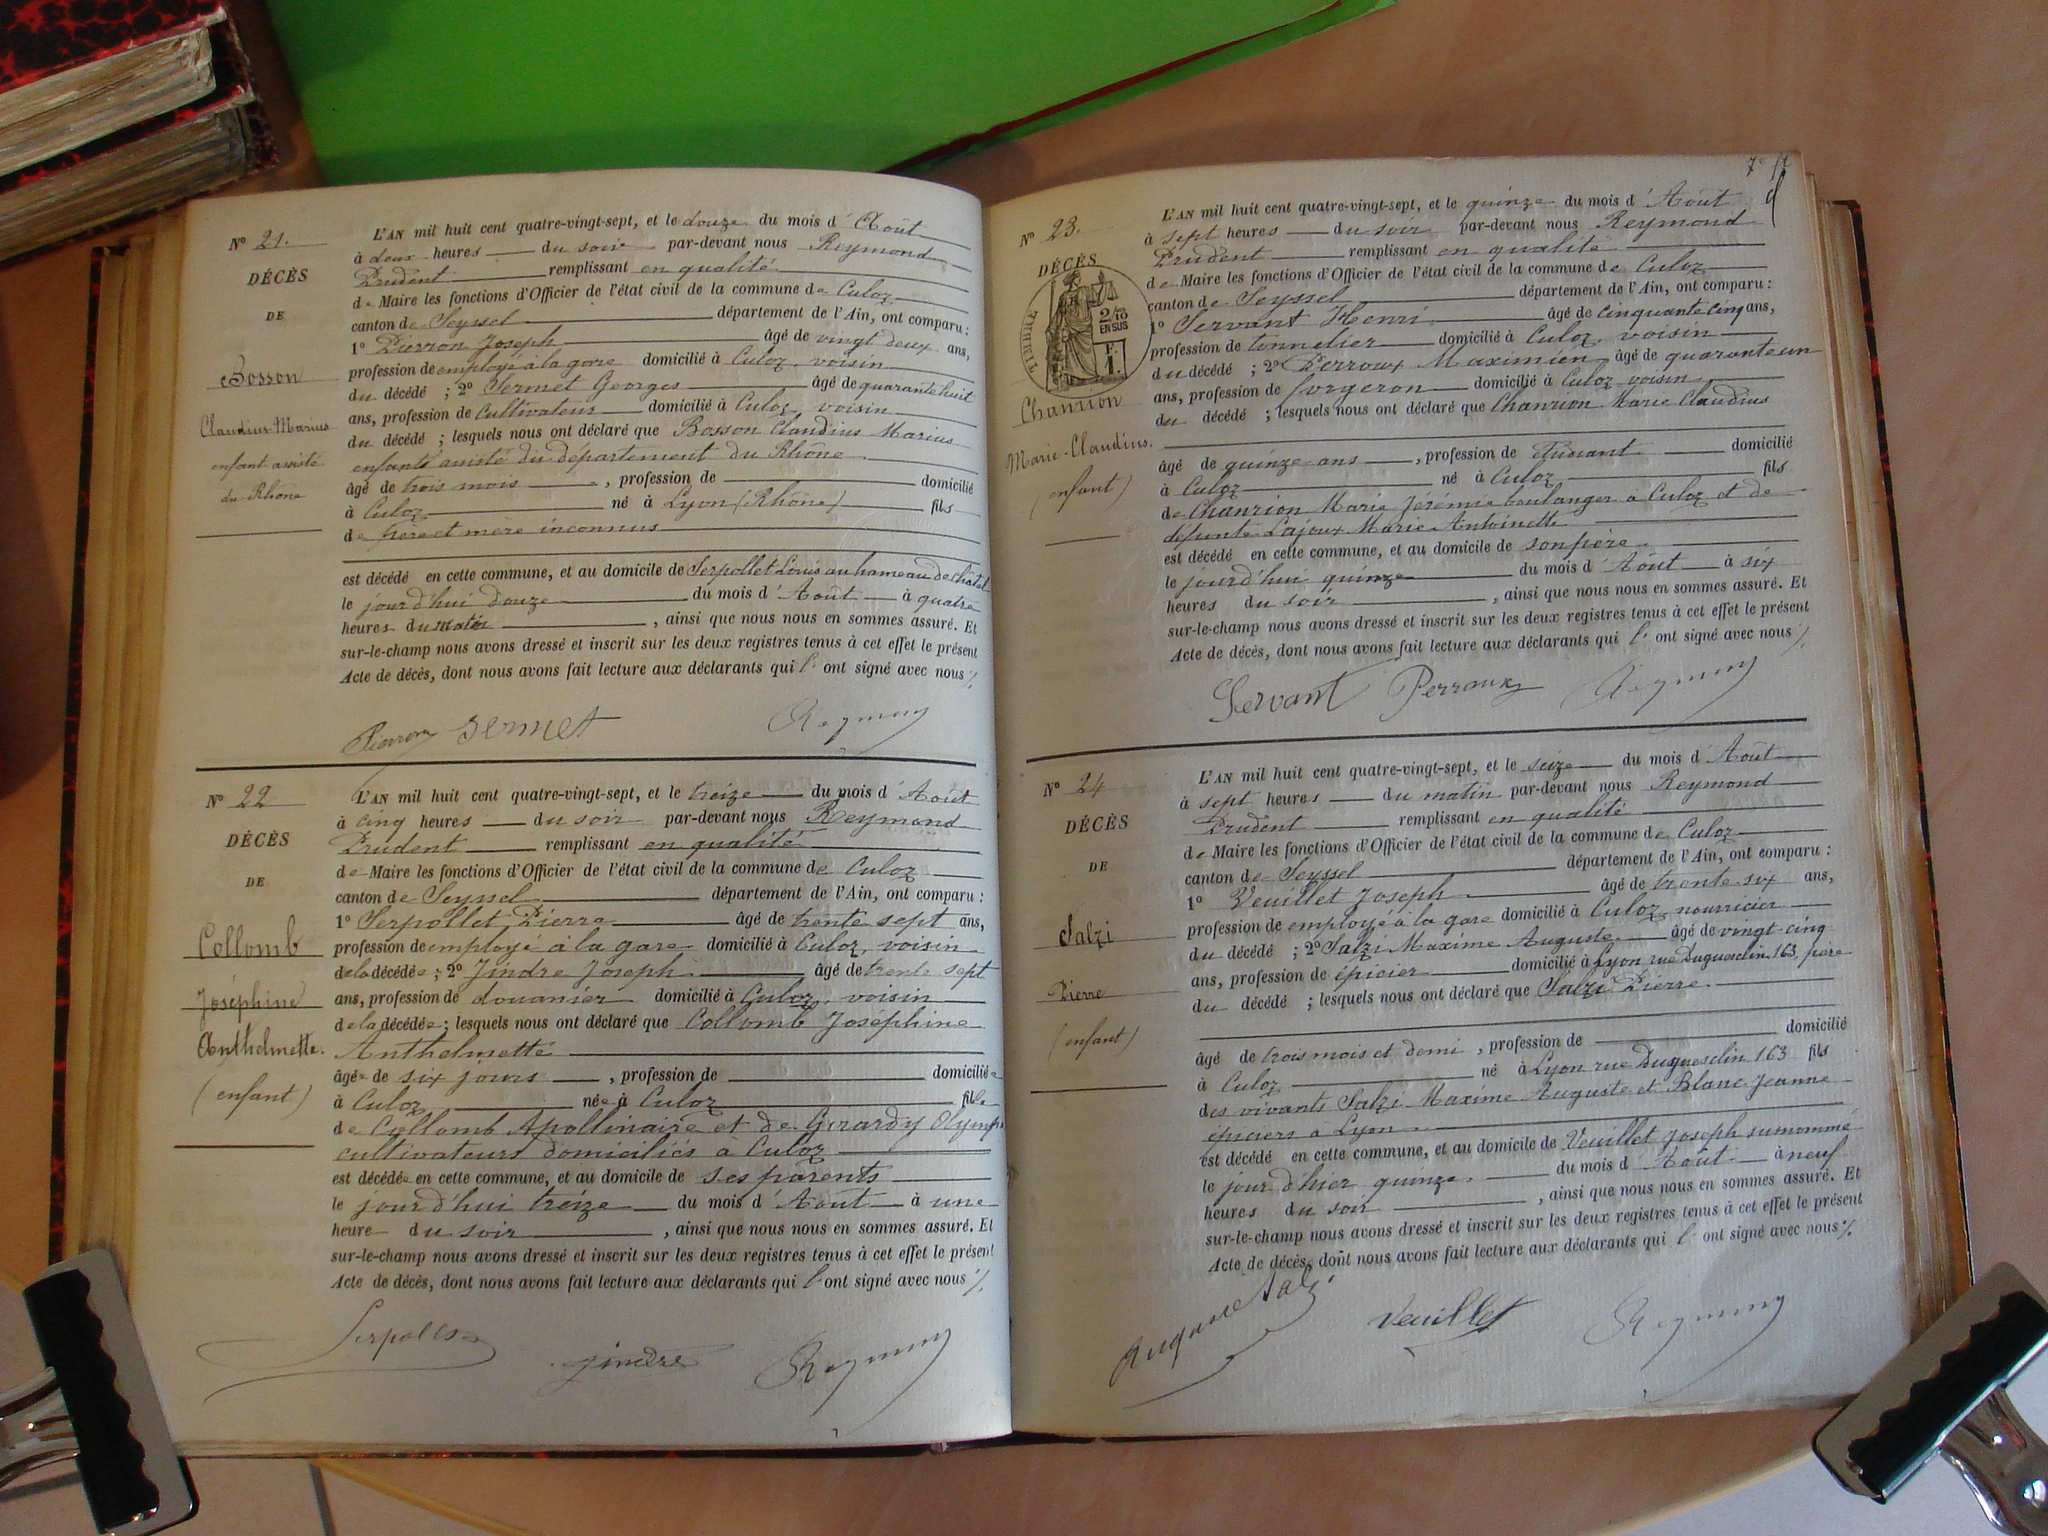 N° 21.
DÉCÈS
DE
Bosson
Claudius-Marius
enfant assisté
du Rhône
L'AN mil huit cent quatre-vingt-sept, et le douze du mois d'Août
à deux heures du soir par-devant nous Reymond
Prudent remplissant en qualité
de Maire les fonctions d'Officier de l'état civil de la commune de Culoz
canton de Seyssel département de l'Ain, ont comparu :
1° Pierron Joseph âgé de vingt deux ans,
profession de employé à la gare domicilié à Culoz, voisin
du décédé ; 2° Sermet Georges âgé de quarante huit
ans, profession de cultivateur domicilié à Culoz, voisin
du décédé ; lesquels nous ont déclaré que Bosson Claudius Marius
enfants assisté du département du Rhône
âgé de trois mois , profession de domicilié
à Culoz né à Lyon (Rhône) fils
de père et mere inconnus
est décédé en cette commune, et au domicile de Serpollet Louis au hameau de Châtel
le jourd'hui douze du mois d'Août à quatre
heures du matin , ainsi que nous nous en sommes assuré. Et
sur-le-champ nous avons dressé et inscrit sur les deux registres tenus à cet effet le présent
Acte de décès, dont nous avons fait lecture aux déclarants qui l'ont signé avec nous
Pierron Sermet Reymond
N° 22
DÉCÈS
DE
Collomb
Joséphine
Anthelmette.
(enfant)
L'AN mil huit cent quatre-vingt-sept, et le treize du mois d'Août
à cinq heures du soir par-devant nous Reymond
Prudent remplissant en qualité
de Maire les fonctions d'Officier de l'état civil de la commune de Culoz
canton de Seyssel département de l'Ain, ont comparu :
1° Serpollet Pierre âgé de trente sept ans,
profession de employé à la gare domicilié à Culoz, voisin
de la décédée ; 2° Jindre Joseph âgé de trente sept
ans, profession de douanier domicilié à Culoz, voisin
de la décédée ; lesquels nous ont déclaré que Collomb Joséphine
Anthelmette
âgée de six jours , profession de domiciliée
à Culoz née à Culoz fille
de Collomb Apollinaire et de Girardy Olympe
cultivateurs domiciliés à Culoz
est décédée en cette commune, et au domicile de ses parents
le jourd'hui treize du mois d'Août à une
heure du soir , ainsi que nous nous en sommes assuré. Et
sur-le-champ nous avons dressé et inscrit sur les deux registres tenus à cet effet le présent
Acte de décès, dont nous avons fait lecture aux déclarants qui l'ont signé avec nous
Serpollet Jindre Reymond
N° 23.
DÉCÈS
TIMBRE
2/10
EN SUS
Chanrion
Marie-Claudius.
(enfant)
L'AN mil huit cent quatre-vingt-sept, et le quinze du mois d'Août
à sept heures du soir par-devant nous Reymond
Prudent remplissant en qualité
de Maire les fonctions d'Officier de l'état civil de la commune de Culoz
canton de Seyssel département de l'Ain, ont comparu :
1° Servant Henri âgé de cinquante cinq ans,
profession de tonnelier domicilié à Culoz, voisin
du décédé ; 2° Perroux Maximien âgé de quarante un
ans, profession de forgeron domicilié à Culoz voisin
du décédé ; lesquels nous ont déclaré que Chanrion Marie Claudius
âgé de quinze ans , profession de Etudiant domicilié
à Culoz né à Culoz fils
de Chanrion Marie Jérémie boulanger à Culoz et de
défunte Lajoux Marie Antoinette
est décédé en cette commune, et au domicile de son père
le jourd'hui quinze du mois d'Août à six
heures du soir , ainsi que nous nous en sommes assuré. Et
sur-le-champ nous avons dressé et inscrit sur les deux registres tenus à cet effet le présent
Acte de décès, dont nous avons fait lecture aux déclarants qui l'ont signé avec nous
Servant Perroux Reymond
N° 24
DÉCÈS
DE
Salzi
Pierre
(enfant)
L'AN mil huit cent quatre-vingt-sept, et le seize du mois d'Août
à sept heures du matin par-devant nous Reymond
Prudent remplissant en qualité
de Maire les fonctions d'Officier de l'état civil de la commune de Culoz
canton de Seyssel département de l'Ain, ont comparu :
1° Veuillet Joseph âgé de trente-six ans,
profession de employé à la gare domicilié à Culoz, nourricier
du décédé ; 2° Salzi Maxime Auguste âgé de vingt cinq
ans, profession de épicier domicilié à Lyon rue Duguesclin 163, père
du décédé ; lesquels nous ont déclaré que Salzi Pierre
âgé de trois mois et demi , profession de domicilié
à Culoz né à Lyon rue Duguesclin 163 fils
des vivants Salzi Maxime Auguste et Blanc Jeanne
épiciers à Lyon
est décédé en cette commune, et au domicile de Veuillet Joseph surnommé
le jour d'hier quinze du mois d'Août à neuf
heures du soir , ainsi que nous nous en sommes assuré. Et
sur-le-champ nous avons dressé et inscrit sur les deux registres tenus à cet effet le présent
Acte de décès, dont nous avons fait lecture aux déclarants qui l'ont signé avec nous
Auguste Salzi Veuillet Reymond